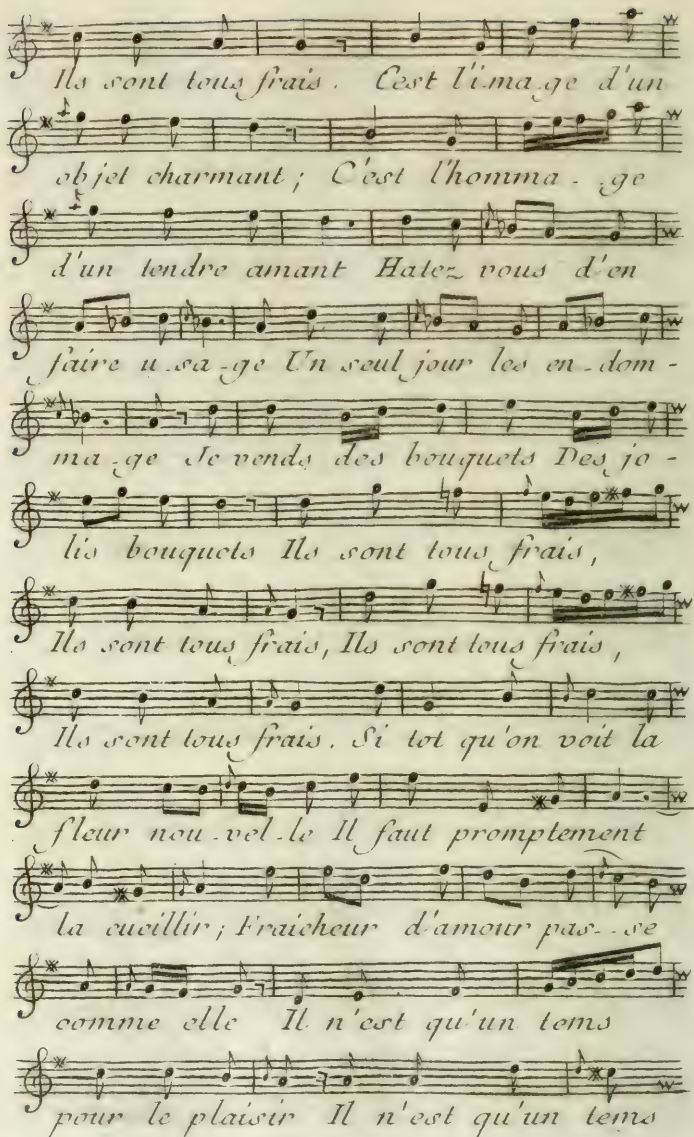 Ils sont tous frais. C'est l'i-ma-ge d'un
objet charmant; C'est l'homma-ge
d'un tendre amant Hatez vous d'en
faire u-sa-ge Un seul jour les en-dom-
ma-ge Je vends des bouquets Des jo-
lis bouquets Ils sont tous frais,
Ils sont tous frais, Ils sont tous frais,
Ils sont tous frais. Si tot qu'on voit la
fleur nou-vel-le Il faut promptement
la cueillir; Fraicheur d'amour pas--se
comme elle Il n'est qu'un tems
pour le plaisir Il n'est qu'un tems